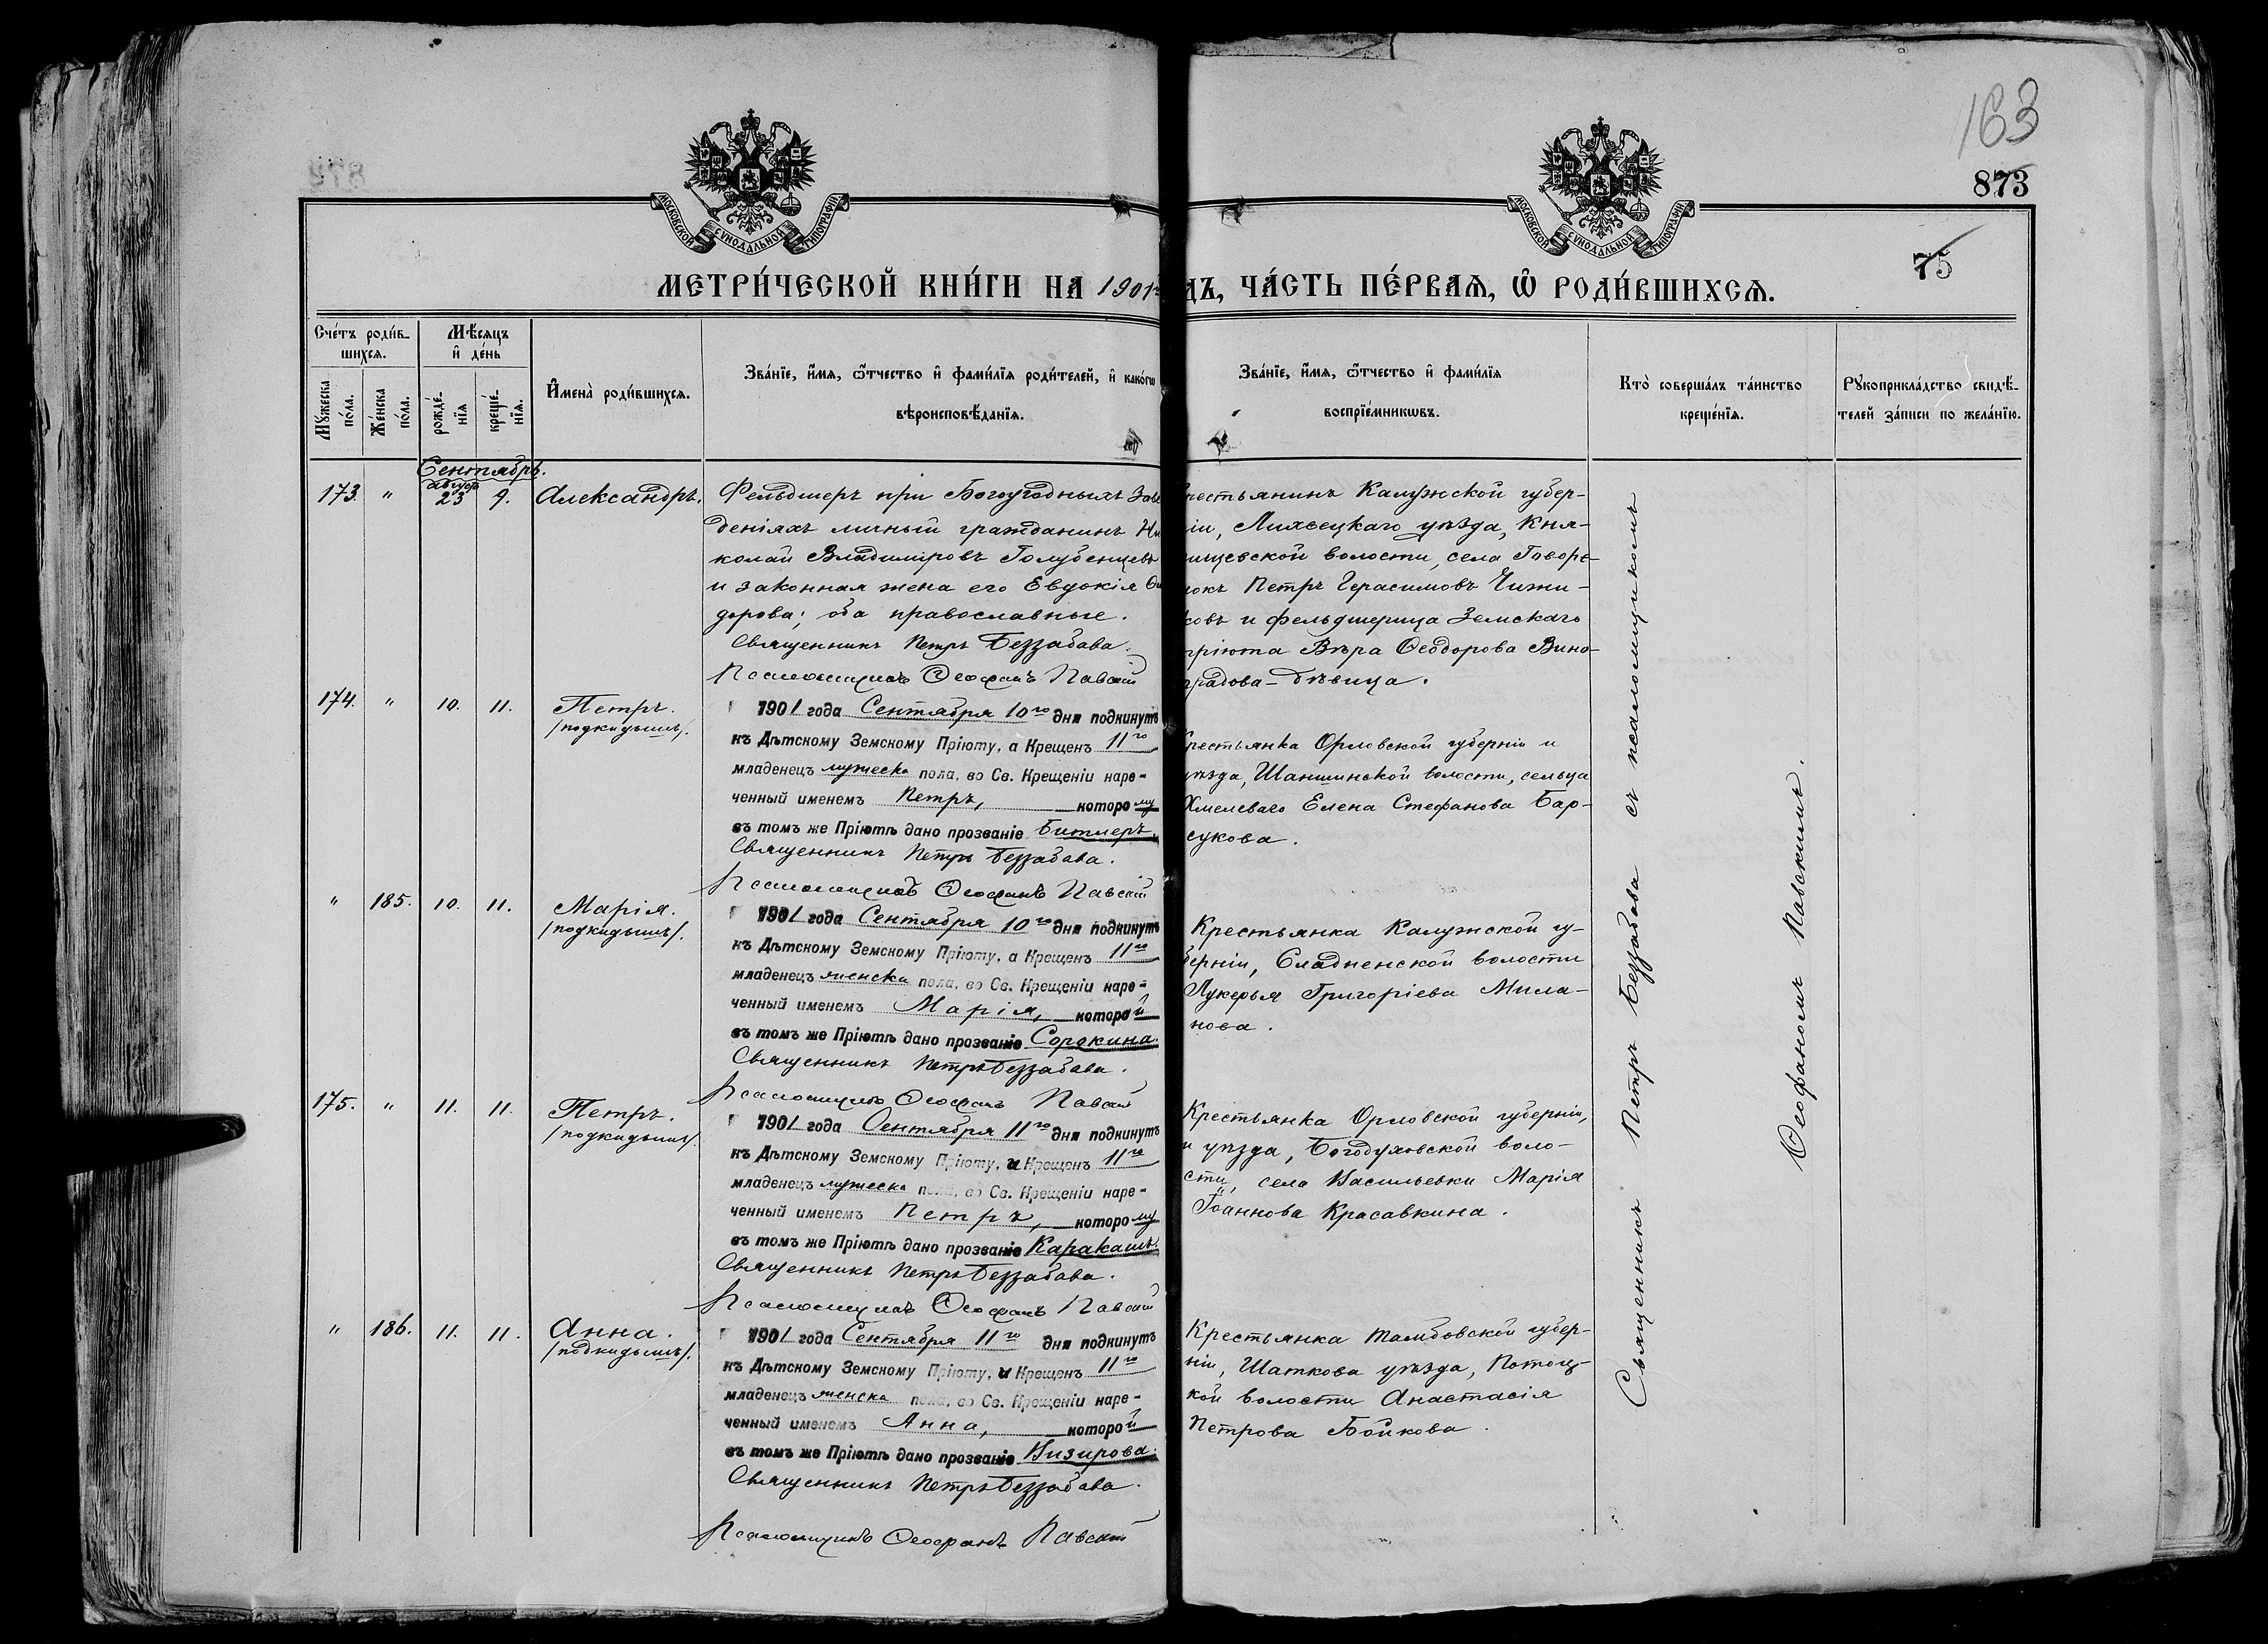 163
873
75
МОСКОВСКОЙ СѴНОДАЛЬНОЙ ТИПОГРАФІИ
МОСКОВСКОЙ СѴНОДАЛЬНОЙ ТИПОГРАФІИ
МЕТРИ́ЧЕСКОЙ КНИ́ГИ НА 1901 ДЪ, ЧА́СТЬ ПЕ́РВАѦ, Ѡ҆ РОДИ́ВШИХСѦ.
Сче́тъ роди́в-
шихсѧ.
Мѣ́сѧцъ
и҆ де́нь
Мꙋжеска
по́ла.
Же́нска
по́ла.
рожде́-
нїѧ
креще́-
нїѧ.
И҆мена̀ роди́вшихсѧ.
Зва́нїе, и҆́мѧ, ѻ҆́тчество и҆ фами́лїѧ роди́телей, и҆ како́гѡ
вѣроисповѣ́данїѧ.
Зва́нїе, и҆́мѧ, ѻ҆́тчество и҆ фами́лїѧ
воспрїе́мникѡвъ.
Кто̀ соверша́лъ та́инство
креще́нїѧ.
Рꙋкоприкла́дство свидѣ́-
телей за́писи по жела́нїю.
Сентябрь.
173. " август 23 9. Александръ.
Фельдшеръ при Богоугодныхъ Заве
деніяхъ личный гражданинъ Ни
колай Владиміровъ Голубенцевъ
и законная жена его Евдокія Ѳи
дорова; оба православные.
Священникъ Петръ Беззабава.
Псаломщикъ Ѳеофанъ Павскій
рестьянинъ Калужской губер-
іи, Лихвецкаго уѣзда, Кня-
ищевской волости, села Говоре-
нокъ Петръ Герасимовъ Чижи-
ковъ и фельдшерица Земскаго
пріюта Вѣра Ѳеодорова Вино-
градова – дѣвица.
174. " 10. 11. Петръ.
/подкидышъ/.
1901 года Сентября 10го дня подкинутъ
къ Дѣтскому Земскому Пріюту, а Крещенъ 11го
младенецъ мужеска пола, во Св. Крещеніи наре-
ченный именемъ Петръ, которому
въ томъ же Пріютѣ дано прозваніе Битнеръ
Священникъ Петръ Беззабава.
Псаломщикъ Ѳеофанъ Павскій
рестьянка Орловской губерніи и
уѣзда, Шаншинской волости, сельца
Хмелеваго Елена Стефанова Бар-
сукова.
" 185. 10. 11. Марія.
/подкидышъ/.
1901 года Сентября 10го дня подкинутъ
къ Дѣтскому Земскому Пріюту, а Крещенъ 11го
младенецъ женска пола, во Св. Крещеніи наре-
ченный именемъ Марія, которой
въ томъ же Пріютѣ дано прозваніе Сорокина.
Священникъ Петръ Беззабава.
Псаломщикъ Ѳеофанъ Павскій
Крестьянка Калужской гу-
берніи, Сладненской волости
Лукерья Григоріева Мила-
нова.
175. " 11. 11. Петръ.
/подкидышъ/.
1901 года Сентября 11го дня подкинутъ
къ Дѣтскому Земскому Пріюту, и Крещенъ 11го
младенецъ мужеска пола, во Св. Крещеніи наре-
ченный именемъ Петръ, которому
въ томъ же Пріютѣ дано прозваніе Каракашъ.
Священникъ Петръ Беззабава.
Псаломщикъ Ѳеофанъ Павскій
Крестьянка Орловской губерніи,
и уѣзда, Богодуховской воло-
сти, села Васильевки Марія
Іоаннова Красавкина.
" 186. 11. 11. Анна.
/подкидышъ/.
1901 года Сентября 11го дня подкинутъ
къ Дѣтскому Земскому Пріюту, и Крещенъ 11го
младенецъ женска пола, во Св. Крещеніи наре-
ченный именемъ Анна, которой
въ томъ же Пріютѣ дано прозваніе Визирова.
Священникъ Петръ Беззабава.
Псаломщикъ Ѳеофанъ Павскій
Крестьянка Тамбовской губер-
ніи, Шаткова уѣзда,
кой волости Анастасія
Петрова Бойкова.
Священникъ Петръ Беззабава съ псаломщикомъ
Ѳеофаномъ Павскимъ.